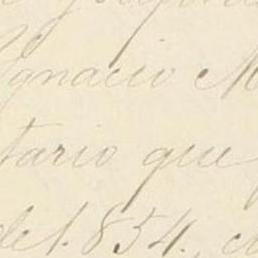 Ignacio M
tario que
del 1.854., c